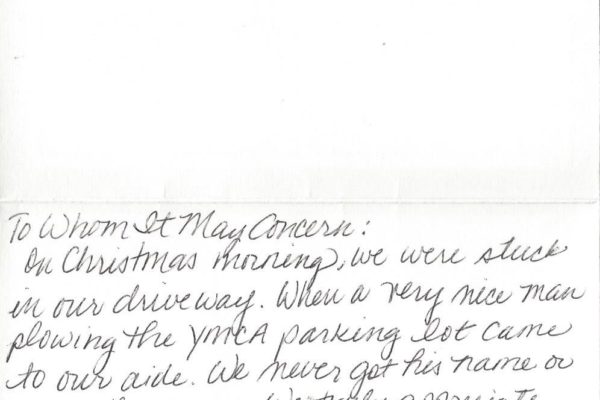 To Whom It May Concern:
On Christmas morning, we were stuck
in our driveway. When a very nice man
plowing the YMCA parking lot came
to our aide. We never got his name or